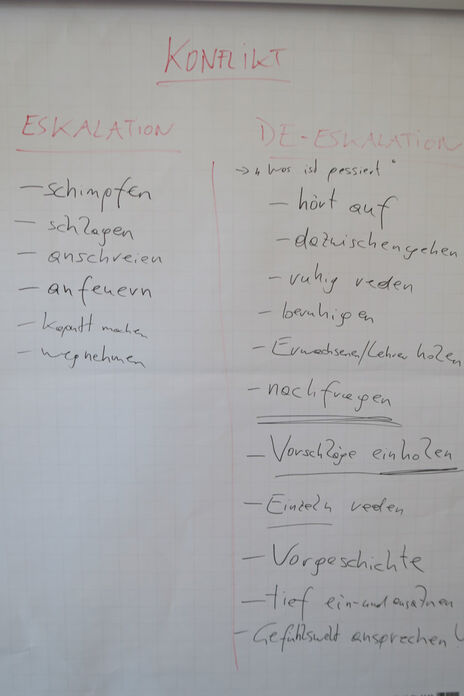 KONFLIKT
ESKALATION
– schimpfen
– schlagen
– anschreien
– anfeuern
– kaputt machen
– wegnehmen
DE-ESKALATION
→ „Was ist passiert"
– hört auf
– dazwischengehen
– ruhig reden
– beruhigen
– Erwachsenen/Lehrer holen
– nachfragen
– Vorschläge einholen
– Einzeln reden
– Vorgeschichte
– tief ein- und ausatmen
– Gefühlswelt ansprechen!